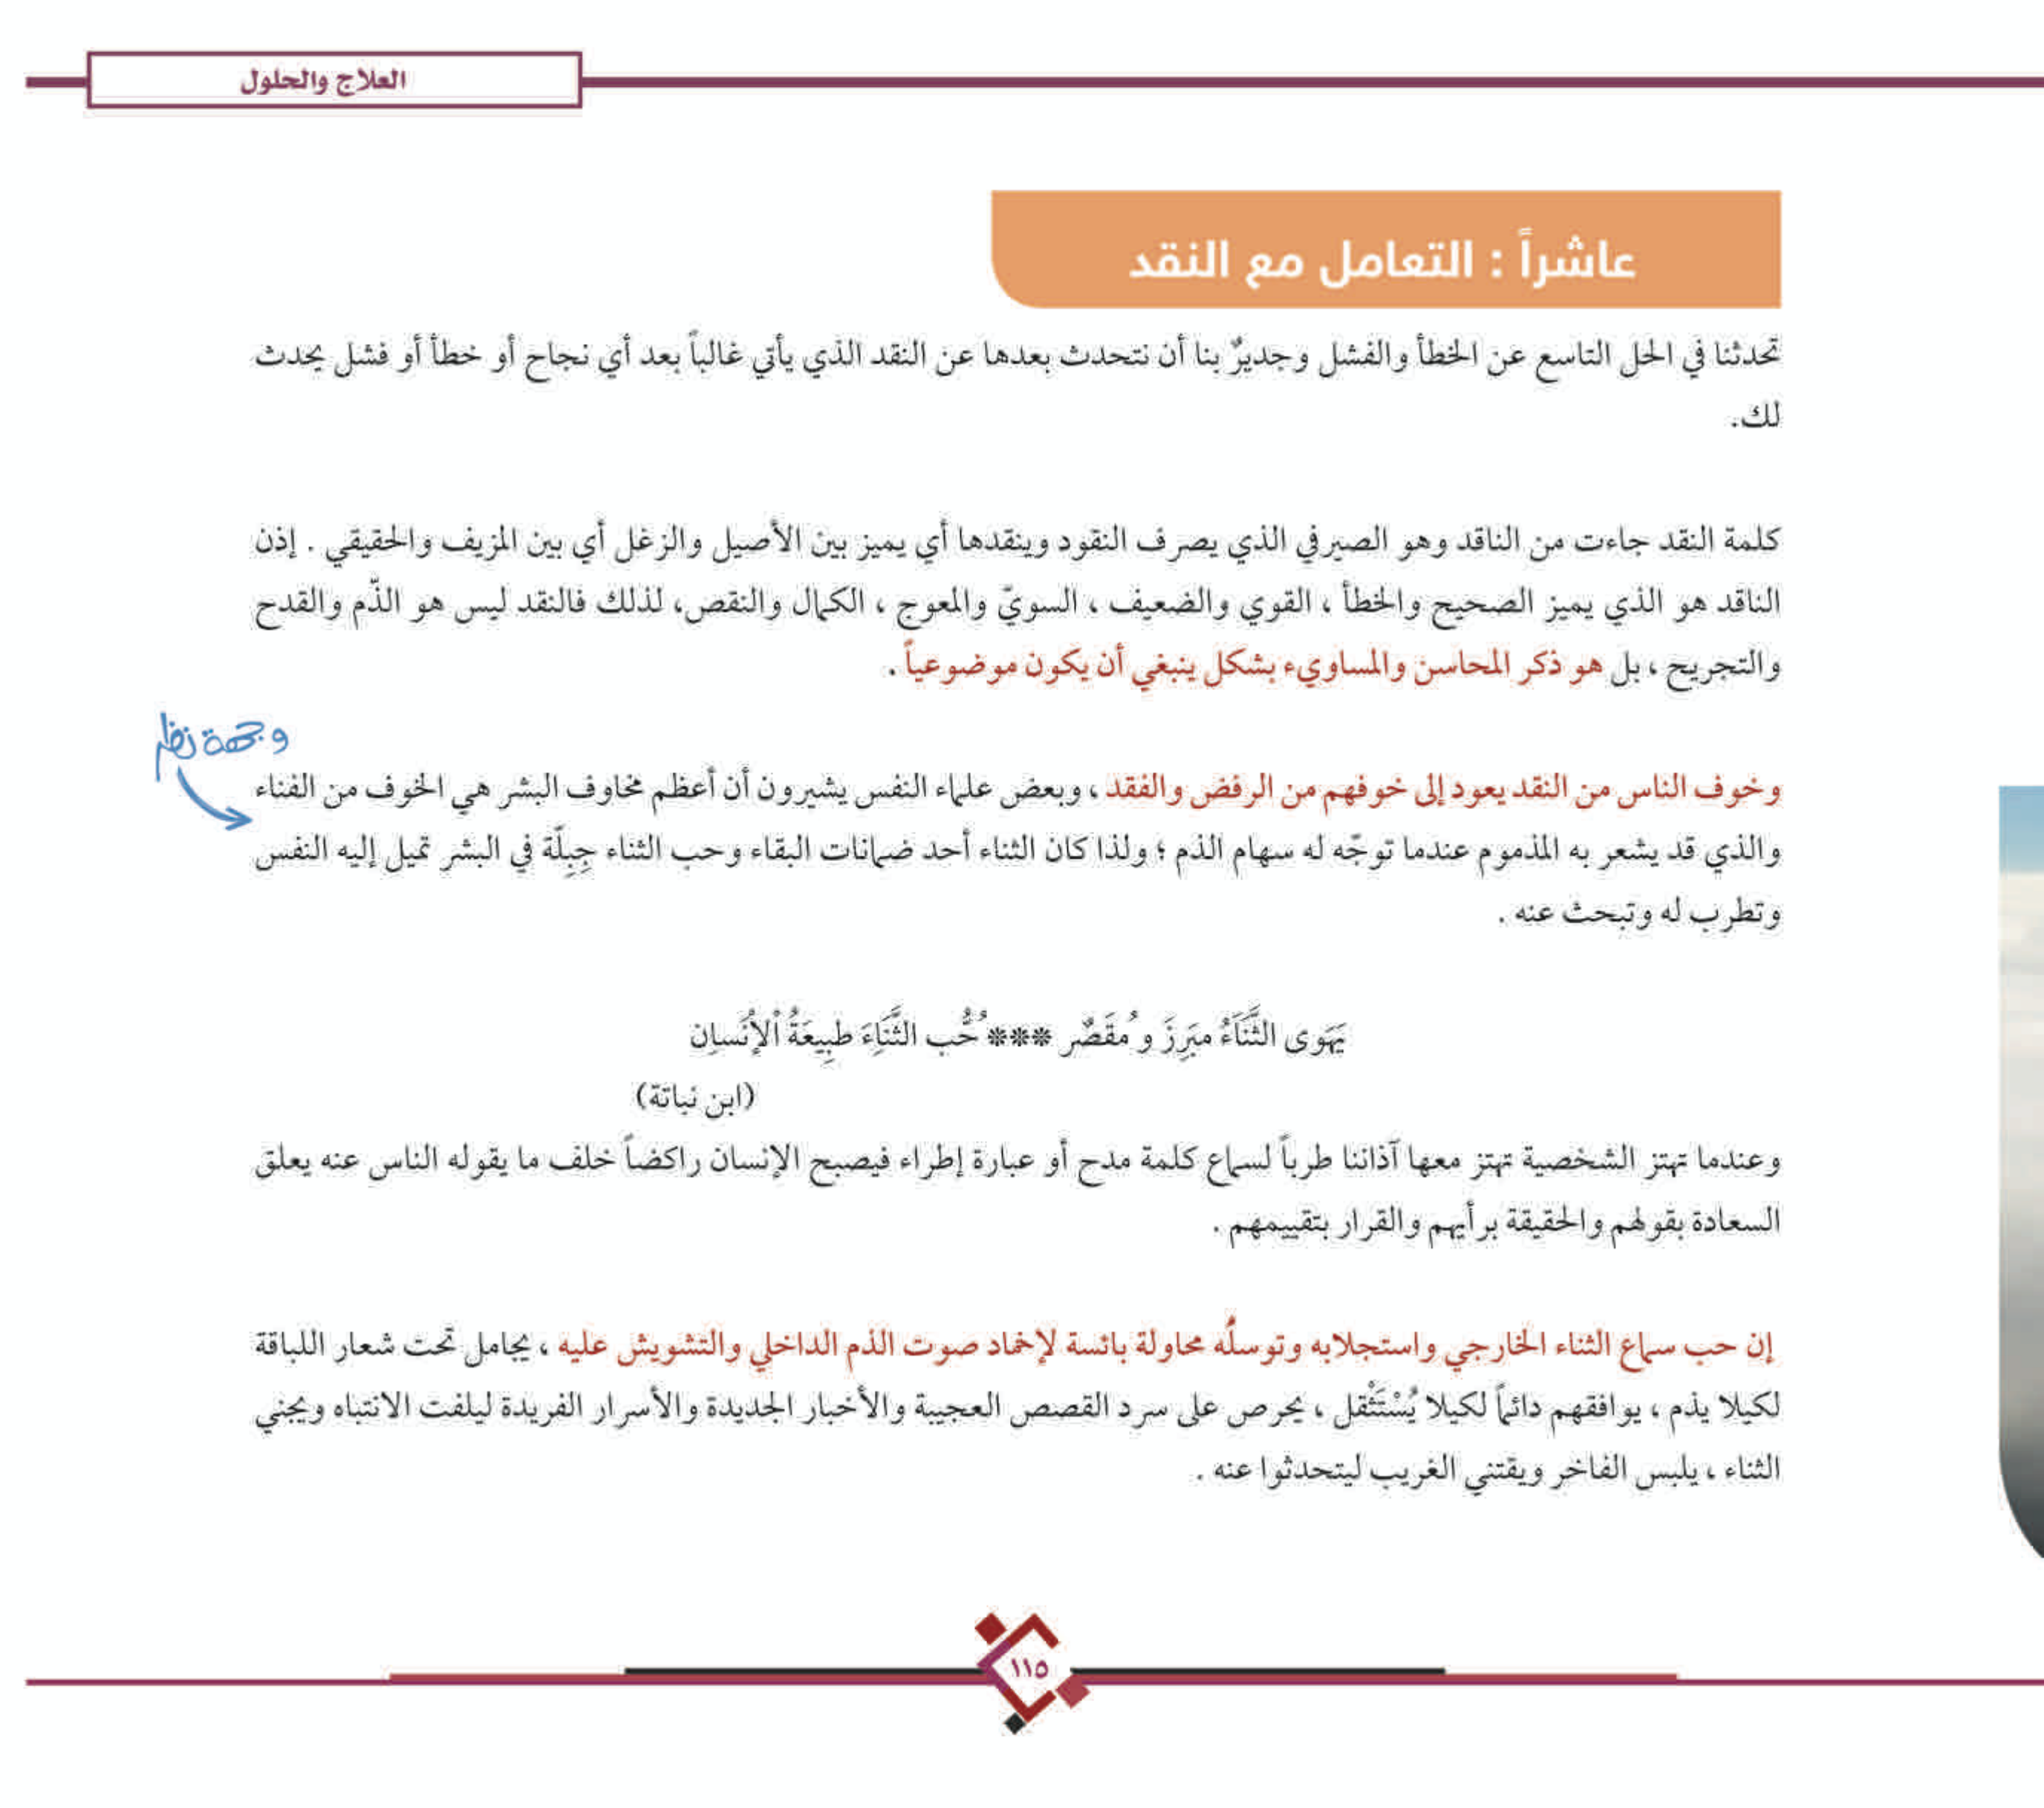 العلاج والحلول
عاشراً : التعامل مع النقد
تحدثنا في الحل التاسع عن الخطأ والفشل وجديرٌ بنا أن نتحدث بعدها عن النقد الذي يأتي غالباً بعد أي نجاح أو خطأ أو فشل يحدث
لك.
كلمة النقد جاءت من الناقد وهو الصيرفي الذي يصرف النقود وينقدها أي يميز بين الأصيل والزغل أي بين المزيف والحقيقي . إذن
الناقد هو الذي يميز الصحيح والخطأ ، القوي والضعيف ، السويّ والمعوج ، الكمال والنقص، لذلك فالنقد ليس هو الذّم والقدح
والتجريح ، بل هو ذكر المحاسن والمساويء بشكل ينبغي أن يكون موضوعياً .
وجهة نظر
وخوف الناس من النقد يعود إلى خوفهم من الرفض والفقد ، وبعض علماء النفس يشيرون أن أعظم مخاوف البشر هي الخوف من الفناء
والذي قد يشعر به المذموم عندما توجّه له سهام الذم ؛ ولذا كان الثناء أحد ضمانات البقاء وحب الثناء جِبِلّة في البشر تميل إليه النفس
وتطرب له وتبحث عنه .
يَهَوى الثَّنَاَءُ مبَرِزَ وُمقَصٌر ***ُحُّب الثَّنَاِءَ طبِيعَةُ اْلإْنَسانِ
(ابن نباتة)
وعندما تهتز الشخصية تهتز معها آذاننا طرباً لسماع كلمة مدح أو عبارة إطراء فيصبح الإنسان راكضاً خلف ما يقوله الناس عنه يعلق
السعادة بقولهم والحقيقة برأيهم والقرار بتقييمهم .
إن حب سماع الثناء الخارجي واستجلابه وتوسلُّه محاولة بائسة لإخماد صوت الذم الداخلي والتشويش عليه ، يجامل تحت شعار اللباقة
لكيلا يذم ، يوافقهم دائماً لكيلا يُسْتَثْقل ، يحرص على سرد القصص العجيبة والأخبار الجديدة والأسرار الفريدة ليلفت الانتباه ويجني
الثناء ، يلبس الفاخر ويقتني الغريب ليتحدثوا عنه .
١١٥